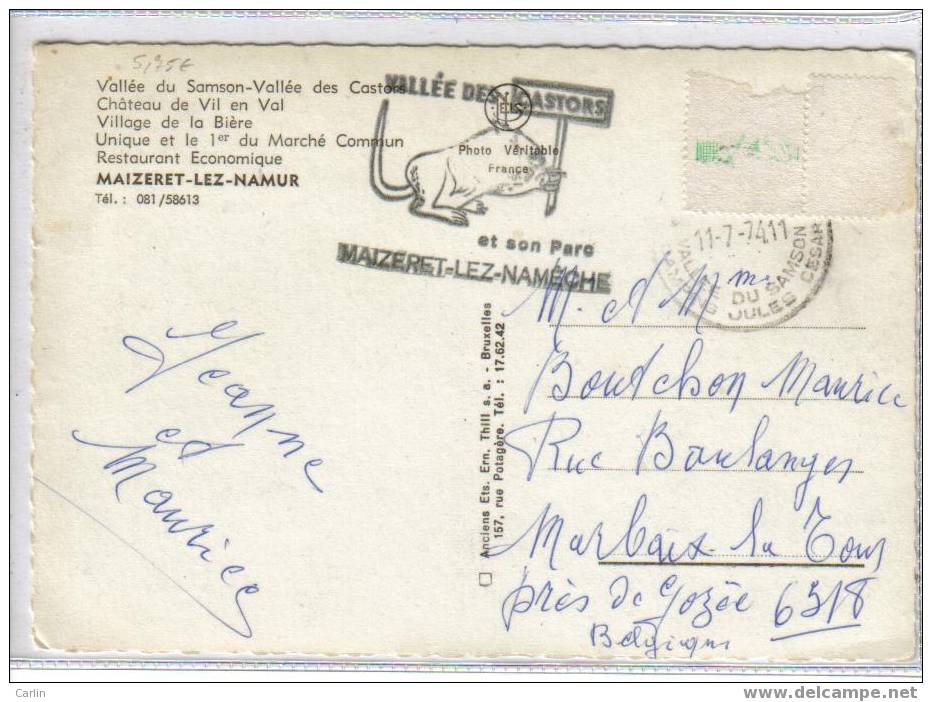 5,75€
Vallée du Samson-Vallée des Castors
Château de Vil en Val
Village de la Bière
Unique et le 1er du Marché Commun
Restaurant Economique
MAIZERET-LEZ-NAMUR
Tél. : 081/58613
VALLÉE DES CASTORS
Photo Véritable
France
et son Parc
MAIZERET-LEZ-NAMÊCHE
11-7-7411
VALLÉE DU SAMSON
JULES CESAR
Jeanne
et
Maurice
Anciens Ets. Ern. Thill s. a. - Bruxelles
157, rue Potagère. Tél. : 17.62.42
M. et Mme
Boutchon Maurice
Rue Boulanger
Marbaix-la Tour
près de Gozée 6318
Belgique
Carlin
www.delcampe.net